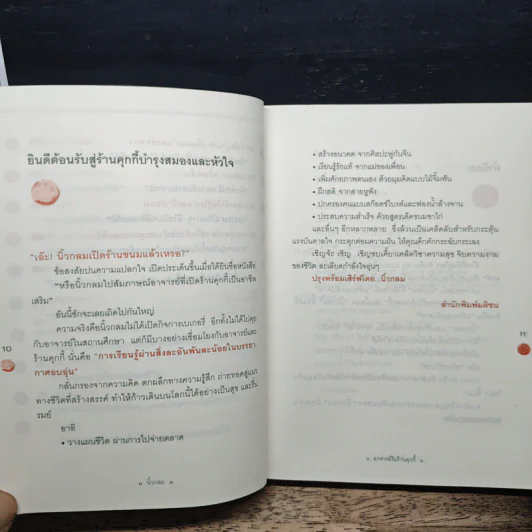 ยินดีต้อนรับสู่ร้านคุกกี้บำรุงสมองและหัวใจ
"เอ๊ะ! นิ้วกลมเปิดร้านขนมแล้วเหรอ?"
ข้อสงสัยปนความแปลกใจ เปิดประเด็นขึ้นเมื่อได้ยินชื่อหนังสือ
"หรือนิ้วกลมไปสัมภาษณ์อาจารย์ที่เปิดร้านคุกกี้เป็นอาชีพ
เสริม"
อันนี้ชักจะเลยเถิดไปกันใหญ่
ความจริงคือนิ้วกลมไม่ได้เปิดกิจการเบเกอรี่ อีกทั้งไม่ได้ไปคุย
กับอาจารย์ในสถานศึกษา แต่ก็มีบางอย่างเชื่อมโยงกับอาจารย์และ
ร้านคุกกี้ นั่นคือ "การเรียนรู้ผ่านสิ่งละอันพันละน้อยในบรรยา-
กาศอบอุ่น"
กลั่นกรองจากความคิด ตกผลึกทางความรู้สึก ถ่ายทอดสู่แนว
ทางชีวิตที่สร้างสรรค์ ทำให้ก้าวเดินบนโลกนี้ได้อย่างเป็นสุข และรื่น
รมย์
อาทิ
• วางแผนชีวิต ผ่านการไปจ่ายตลาด
10
นิ้วกลม
• สร้างอนาคต จากศิลปะพู่กันจีน
• เรียนรู้รักแท้ จากแม่ของเพื่อน
• เพิ่มศักยภาพตนเอง ด้วยมุมคิดแบบไม้จิ้มฟัน
• ฝึกสติ จากสายหูฟัง
• ปกครองคนแบบสก๊อตช์ไบรต์และฟองน้ำล้างจาน
• ประสบความสำเร็จ ด้วยสูตรเด็ดชนมชาโก่
และอื่นๆ อีกหลากหลาย ซึ่งล้วนเป็นเคล็ดลับสำหรับกระตุ้น
แรงบันดาลใจ กระตุกต่อมความฝัน ให้คุณคึกคักกระฉับกระเฉง
เชิญจ้ะ เชิญ... เชิญขบเคี้ยวเคล็ดวิชาความสุข จิบความงาม
ของชีวิต ละเลียดกำลังใจอุ่นๆ
ปรุงพร้อมเสิร์ฟโดย...นิ้วกลม
สำนักพิมพ์มติชน
11
อาจารย์ในร้านคุกกี้